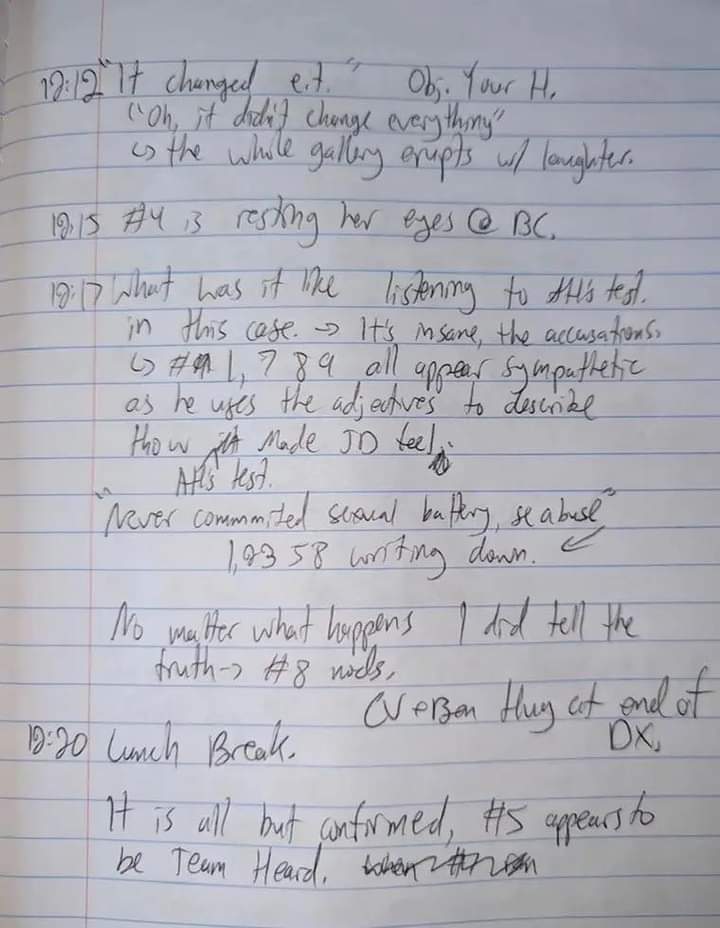 12:12 "It changed e.t." Obj. Your H.
("Oh, it didn't change everything"
↳ the whole gallery erupts w/ laughter.
12:15 #4 is resting her eyes @ BC.
12:17 What was it like listening to AH's test.
in this case. → It's insane, the accusations.
↳ # 1, 7 8 9 all appear sympathetic
as he uses the adjectives to describe
how it made JD feel.
AH's test.
"Never committed sexual battery, se abuse"
1,2 3 5 8 writing down.
No matter what happens I did tell the
truth → #8 nods.
CV + Ben Hug at end of
12:20 Lunch Break. DX.
It is all but confirmed, #5 appears to
be Team Heard.